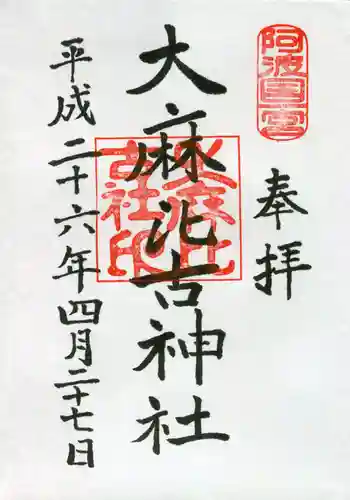 阿波國一宮
奉拝
大麻比古神社
大麻比古社印
平成二十六年四月二十七日